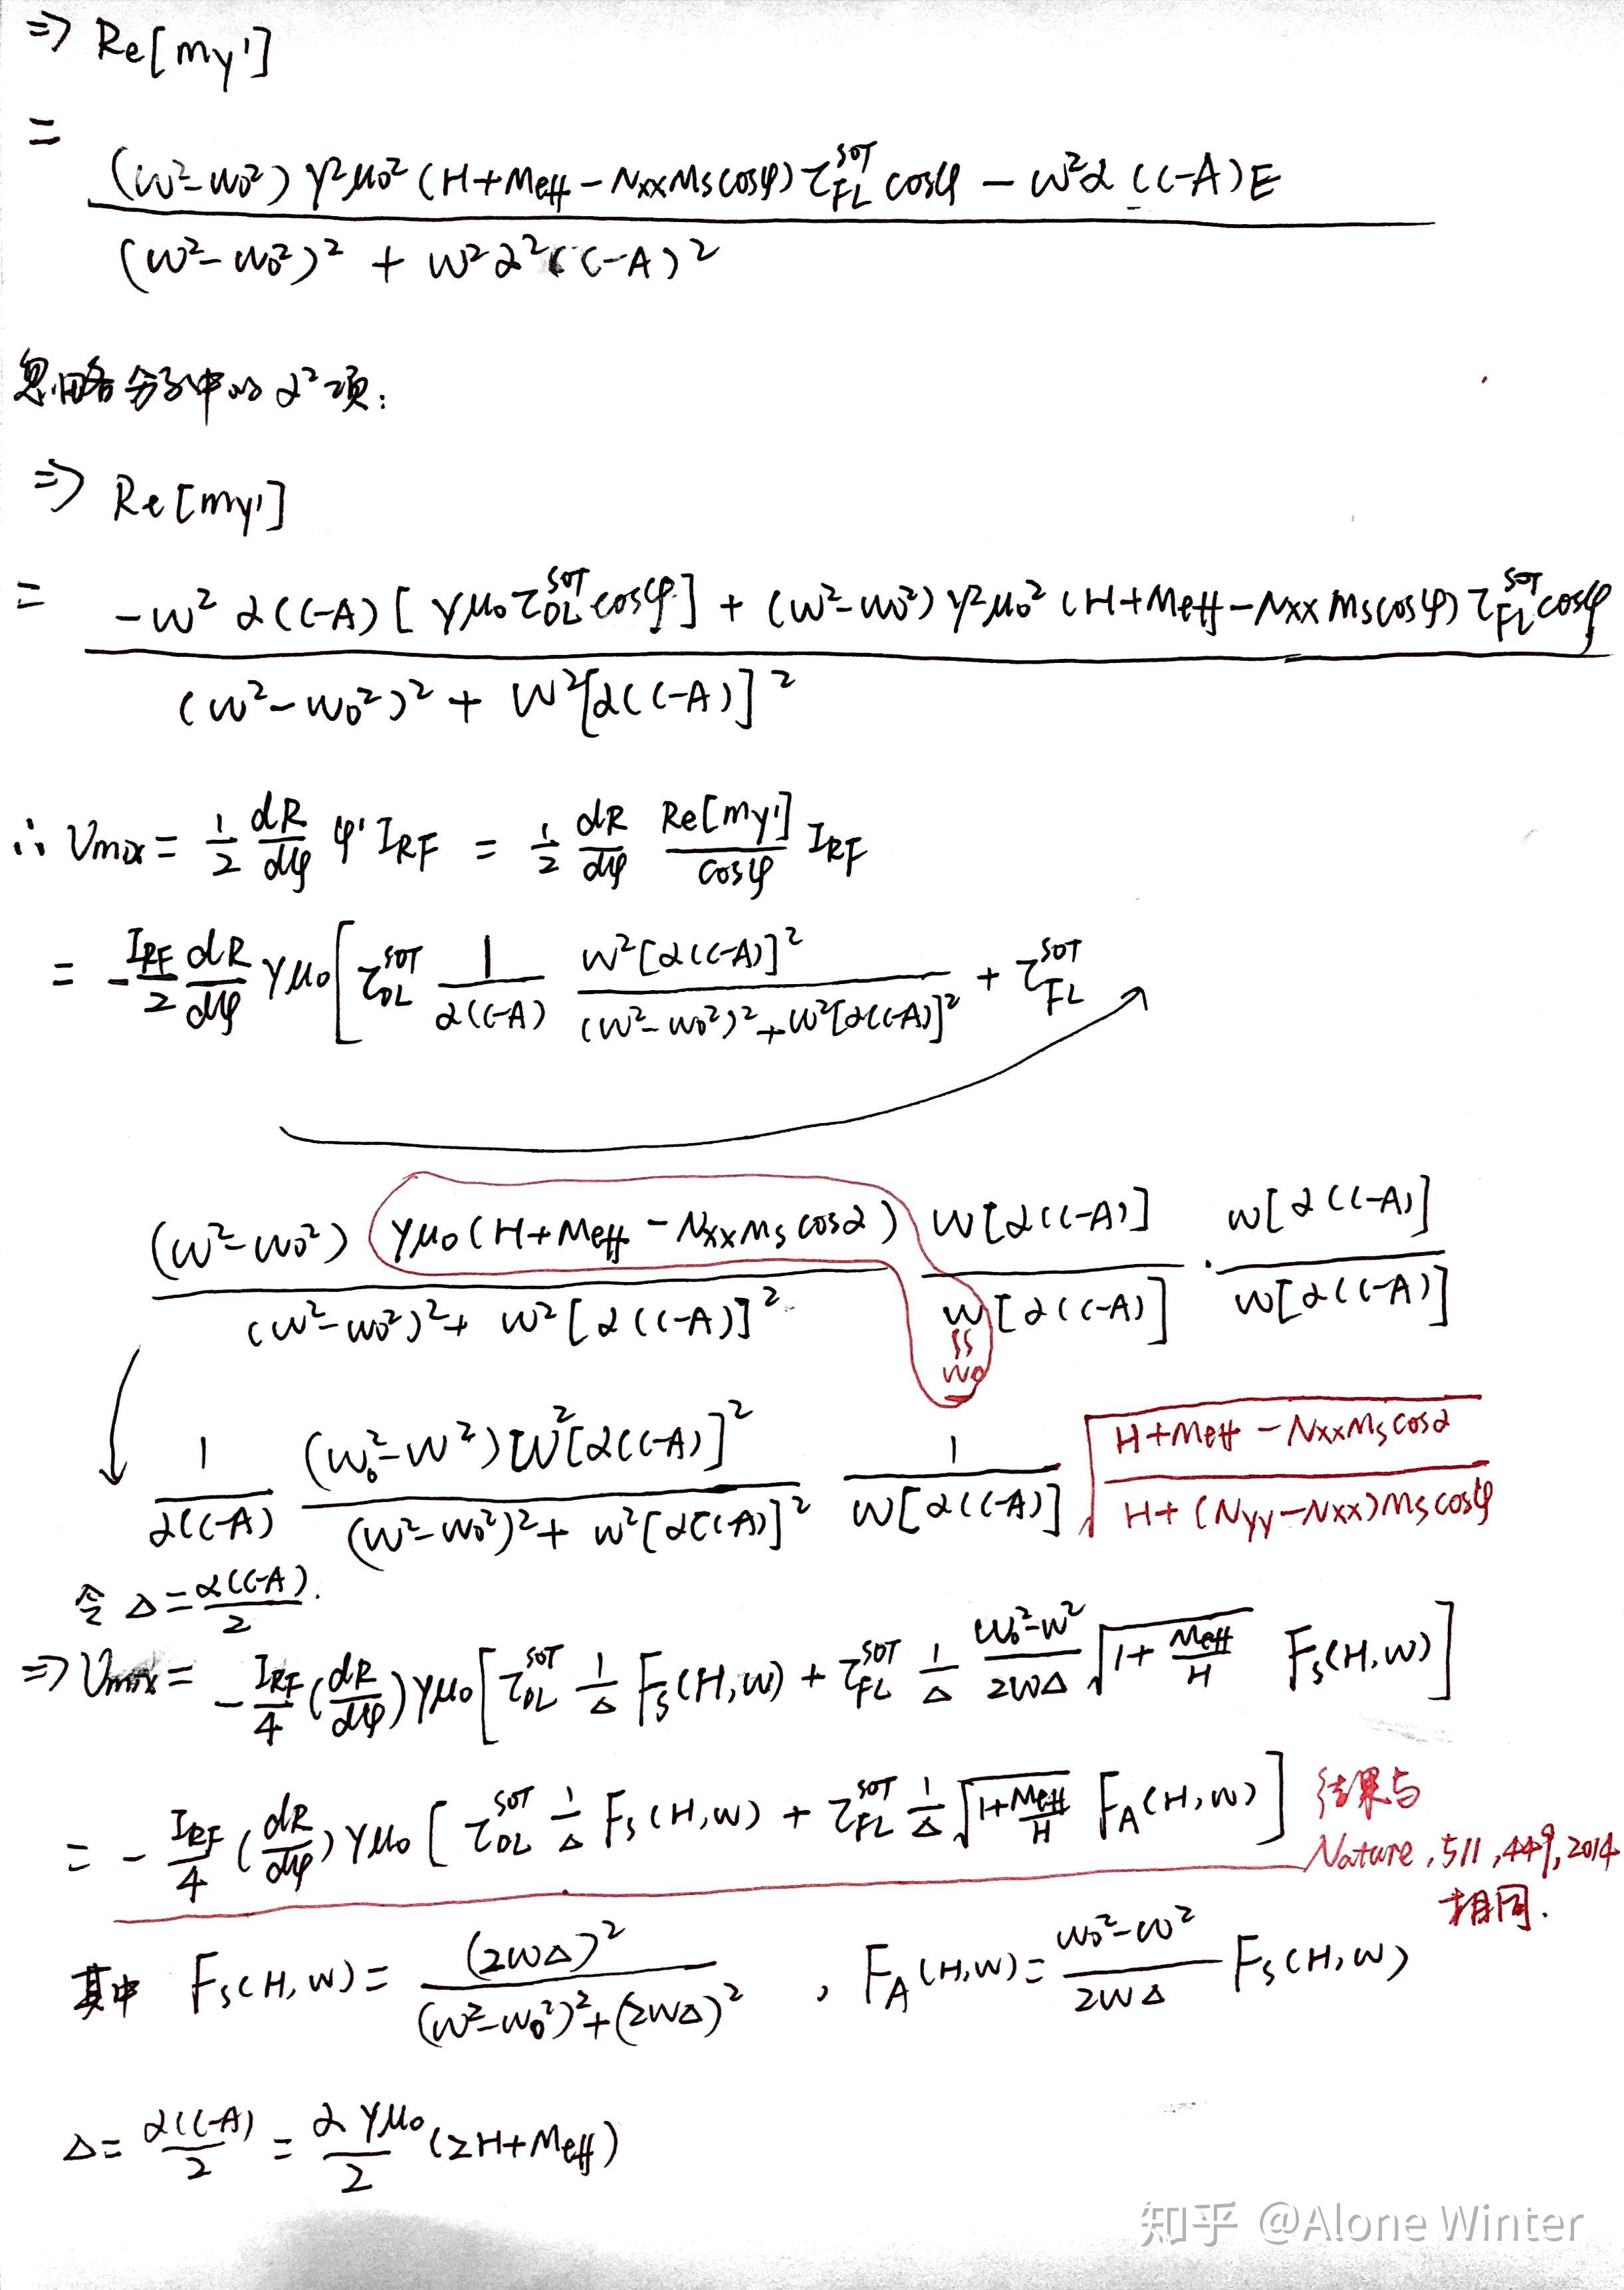 ⇒ Re[my']
=
(w²-w₀²) γ²μ₀² (H+Meff-NxxMscosφ) τ_FL^SOT cosφ - w²α(C-A)E
(w²-w₀²)² + w²α²(C-A)²
忽略分子中的α²项:
⇒ Re[my']
= -w²α(C-A)[γμ₀τ_DL^SOT cosφ] + (w²-w₀²)γ²μ₀²(H+Meff-NxxMscosφ)τ_FL^SOT cosφ
(w²-w₀²)² + w²[α(C-A)]²
∴ Vmix = 1/2 dR/dφ φ' I_RF = 1/2 dR/dφ Re[my']/cosφ I_RF
= -I_RF/2 dR/dφ γμ₀[τ_DL^SOT 1/α(C-A) w²[α(C-A)]²/(w²-w₀²)²+w²[α(C-A)]² + τ_FL^SOT
(w²-w₀²) γμ₀(H+Meff-NxxMscosα) w[α(C-A)] · w[α(C-A)]
(w²-w₀²)²+ w²[α(C-A)]² w[α(C-A)] w[α(C-A)]
w₀
1/α(C-A) (w₀²-w²)w²[α(C-A)]²/(w²-w₀²)²+w²[α(C-A)]² 1/w[α(C-A)] √(H+Meff-NxxMscosα)/(H+(Nyy-Nxx)Mscosφ)
令 Δ=α(C-A)/2.
⇒ Vmix = -I_RF/4 (dR/dφ)γμ₀[τ_DL^SOT 1/Δ Fs(H,w) + τ_FL^SOT 1/Δ w₀²-w²/2wΔ √1+Meff/H Fs(H,w)]
= -I_RF/4 (dR/dφ)γμ₀[τ_DL^SOT 1/Δ Fs(H,w) + τ_FL^SOT 1/Δ √1+Meff/H F_A(H,w)] 结果与
Nature, 511, 449, 2014
相同.
其中 Fs(H,w) = (2wΔ)²/(w²-w₀²)²+(2wΔ)² , F_A(H,w) = w₀²-w²/2wΔ Fs(H,w)
Δ = α(C-A)/2 = αγμ₀/2 (2H+Meff)
知乎 @Alone Winter